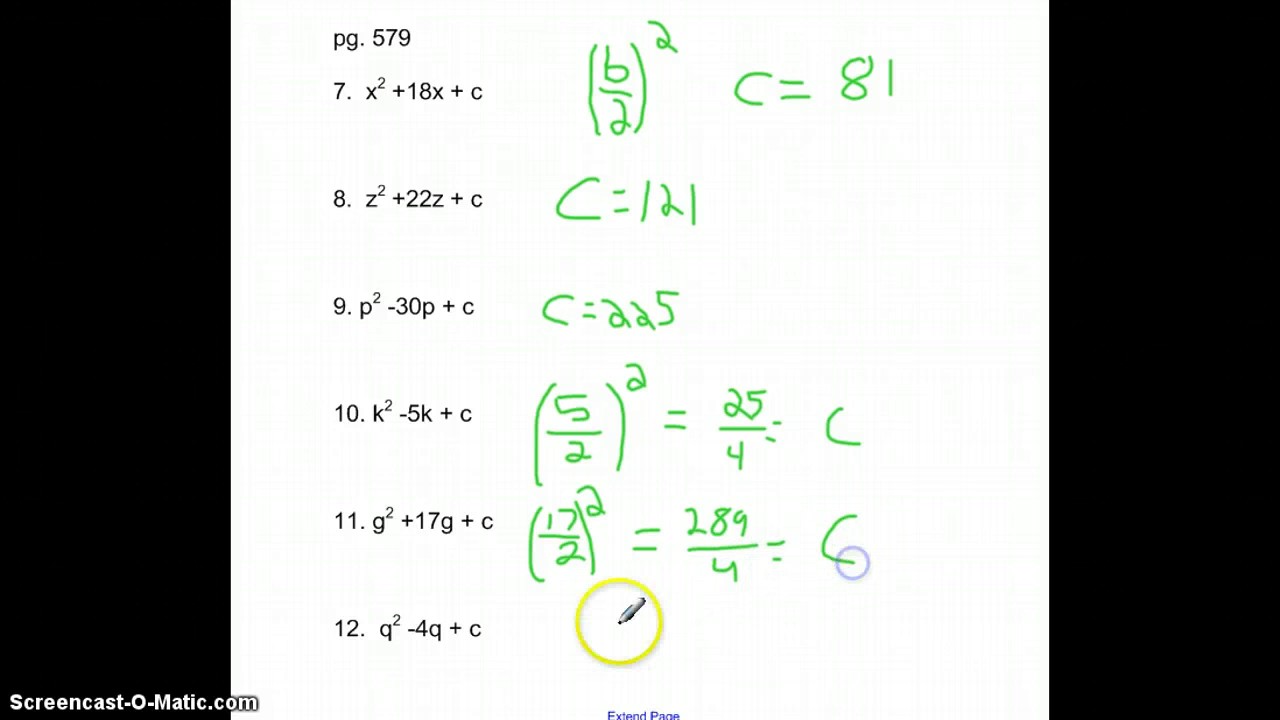 pg. 579
7. x² +18x + c (b/2)² C = 81
8. z² +22z + c C = 121
9. p² -30p + c C = 225
10. k² -5k + c (5/2)² = 25/4 = C
11. g² +17g + c (17/2)² = 289/4 = C
12. q² -4q + c
Screencast-O-Matic.com
Extend Page